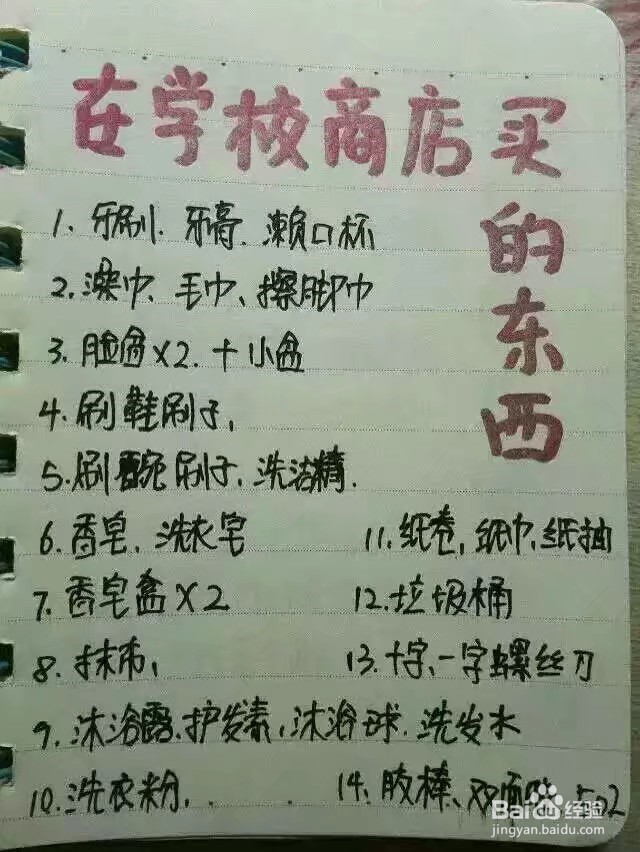 在学校商店买
的东西
1. 牙刷、牙膏、漱口杯
2. 澡巾、毛巾、擦脚巾
3. 脸盆×2. + 小盆
4. 刷鞋刷子,
5. 刷碗刷子、洗洁精.
6. 香皂, 洗衣皂
7. 香皂盒×2
8. 抹布,
9. 沐浴露、护发素, 沐浴球、洗发水
10. 洗衣粉,
11. 纸卷, 纸巾, 纸抽
12. 垃圾桶
13. 十字、一字螺丝刀
14. 胶棒、双面 502
Baidu经验
jingyan.baidu.com